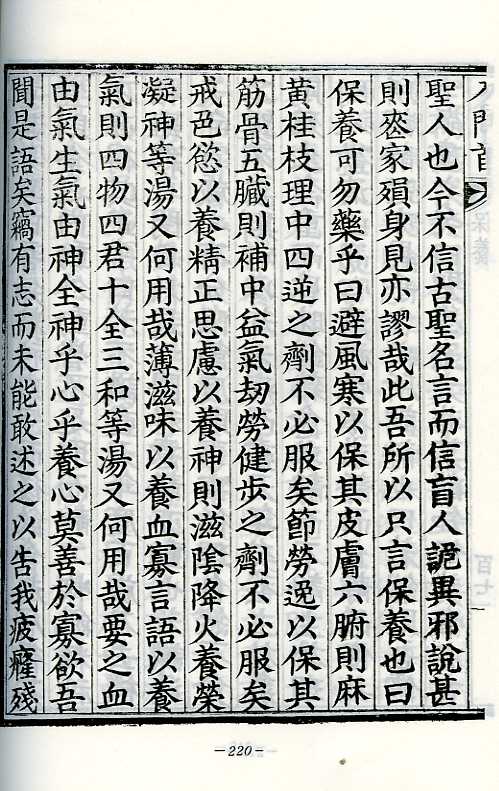 入門首
聖人也今不信古聖名言而信盲人詭異邪說甚
則喪家殞身見亦謬哉此吾所以只言保養也曰
保養可勿藥乎曰避風寒以保其皮膚六腑則麻
黃桂枝理中四逆之劑不必服矣節勞逸以保其
筋骨五臟則補中益氣劫勞健步之劑不必服矣
戒色慾以養精正思慮以養神則滋陰降火養榮
凝神等湯又何用哉薄滋味以養血寡言語以養
氣則四物四君十全三和等湯又何用哉要之血
由氣生氣由神全神乎心乎養心莫善於寡欲吾
聞是語矣竊有志而未能敢述之以告我疲癃殘
-220-